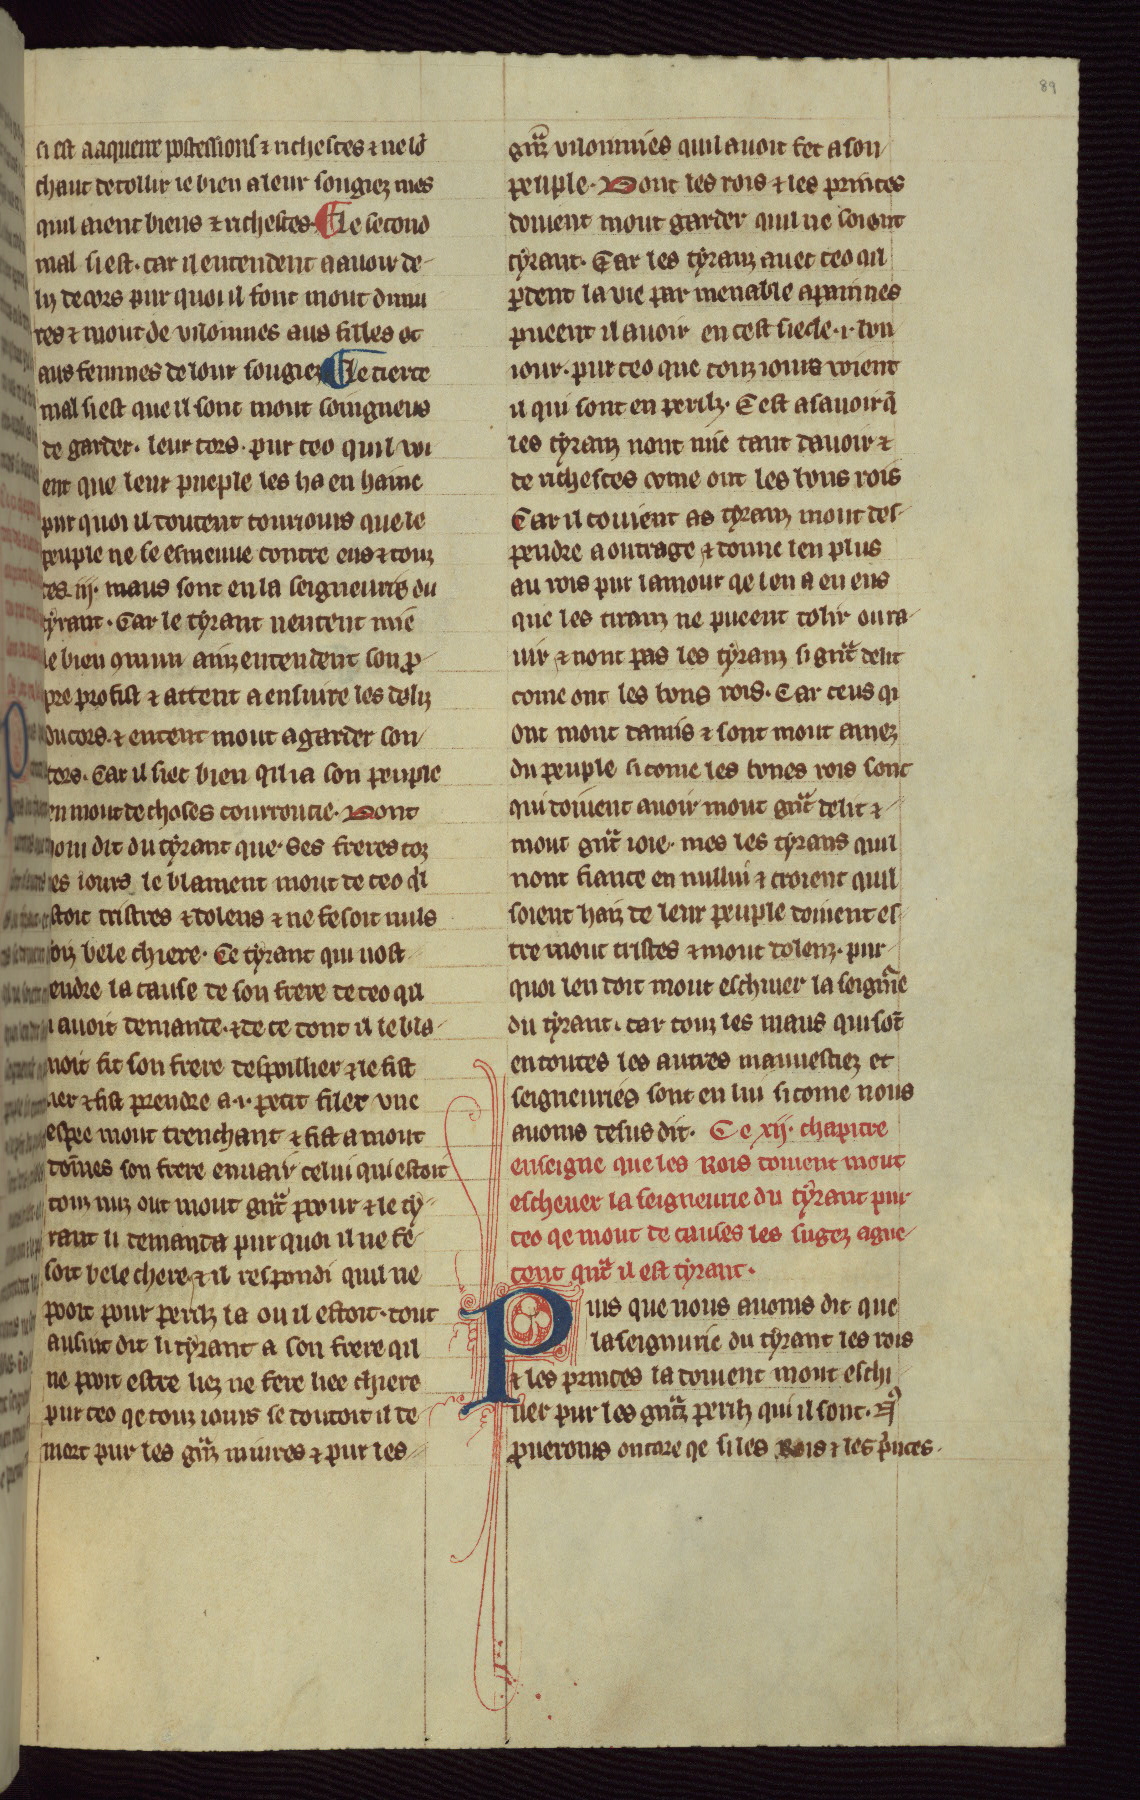 89
ci est a aquerre possessions ⁊ richesces ⁊ ne lor
chaut de tollir le bien a leur sougiez mes
quil aient biens ⁊ richesces. Le second
mal si est. car il entendent a avoir de-
liz de cors pur quoi il font mout d
tes ⁊ mout de vilonnies aus filles et
aus femmes de lour sougiez Le tierce
mal si est que il sont mout soingneus
de garder. leur cors. pur ceo quil voi
ent que leur pueple les ha en haine
pur quoi il doutent touriours que le
peuple ne se esmeuue contre eus ⁊ touz
ces iij. maus sont en la seigneurie du
tyrant. Car le tyrant nentent mie
le bien qmun ainz entendent son p̄-
pre profist ⁊ attent a ensuire les deliz
du cors. ⁊ entent mout a garder son
cors. Car il siet bien qil a son peuple
en mout de choses courroucie. Dont
lom dit du tyrant que. Ses freres toz
es iours le blament mout de ceo ql
stoit tristres ⁊ dolens ⁊ ne fesoit nuls
oiz bele chiere. Ce tyrant qui vost
endre la cause de son frere de ceo qil
i avoit demande. ⁊ de ce dont il le bla-
moit fit son frere despoillier ⁊ le fist
lier ⁊ fist prendre a .i. petit filet vne
espee mout trenchant ⁊ fist a mout
dōmes son frere enuair celui qui estoit
touz nuz out mout gnt poour ⁊ le ty-
rant li demanda pur quoi il ne fe-
soit bele chere ⁊ il respondi quil ne
pooit pour perilz la ou il estoit. tout
ausint dit li tyrant a son frere qil
ne pooit estre liez ne fere liee chiere
pur ceo qe touz iours se doutoit il de
mort pur les gnz iniures ⁊ pur les
gnz vilonnies quil avoit fet a son
peuple. Dont les rois ⁊ les princes
doiuent mout garder quil ne soient
tyrant. Car les tyranz auec ceo qil
pdent la vie par menable a painnes
pueent il avoir en cest siecle .i. bon
iour. pur ceo que touz iours voient
il qui sont en perilz. C est a savoir q̄
les tyranz nont mie tant davoir ⁊
de richesces come ont les bons rois
Car il couient as tyranz mout des-
pendre a outrage ⁊ donne len plus
au rois pur lamour qe len a en eus
que les tiranz ne pueent tolir ou ra-
uir ⁊ nont pas les tyranz si gnt delit
come ont les bons rois. Car ceus qi
ont mout damis ⁊ sont mout amez
du peuple si come les bones rois sont
qui doiuent avoir mout gnt delit ⁊
mout gnt ioie. mes les tyrans quil
nont fiance en nullui ⁊ croient quil
soient haiz de leur peuple doiuent es-
tre mout tristes ⁊ mout dolenz. pur
quoi len doit mout eschiuer la seigrie
du tyrant. car touz les maus qui sōt
en toutes les autres mauuestiez et
seigneuries sont en lui si come nous
avoms desus dit. Ce xij. chapitre
enseigne que les Rois doiuent mout
escheuer la seigneurie du tyrant pur
ceo qe mout de causes les sugez ague-
tent qnt il est tyrant.
Puis que nous avoms dit que
la seignurie du tyrant les rois
⁊ les princes la doiuent mout eschi
uer pur les gnz perilz qui il sont.
prouerons encore qe si les Rois ⁊ les p̄nces.